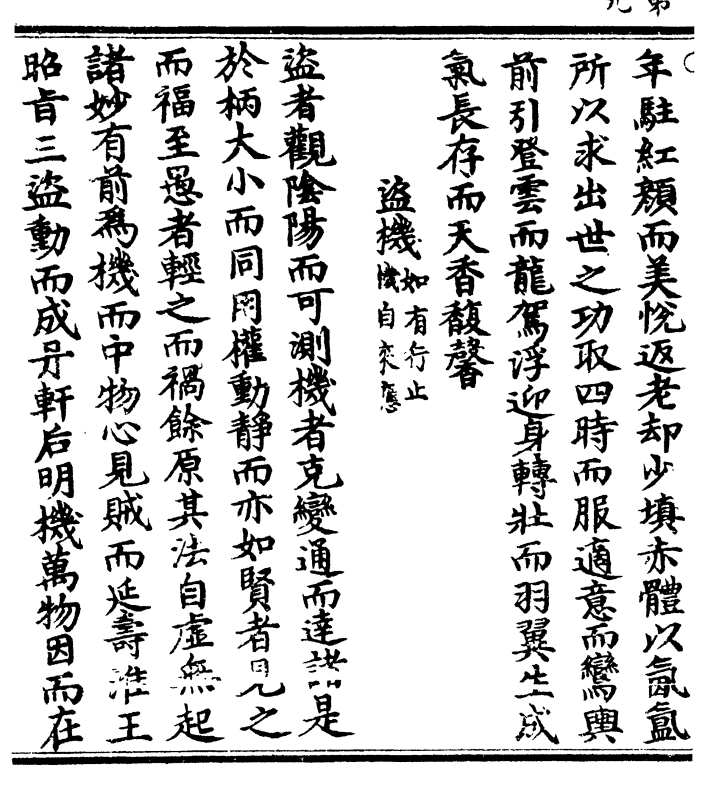 第九
年駐紅顏而美悅返老却少填赤體以氤氳
所以求出世之功取四時而服適意而鸞輿
前引登雲而龍駕浮迎身轉壯而羽翼生成
氣長存而天香馥馨
盜機如有行止機自來應
盜者觀陰陽而可測機者克變通而達諸是
於柄大小而同用權動靜而亦如賢者見之
而福至愚者輕之而禍餘原其法自虛無起
諸妙有前為機而中物心見賊而延壽淮王
昭旨三盜動而成丹軒后明機萬物因而在